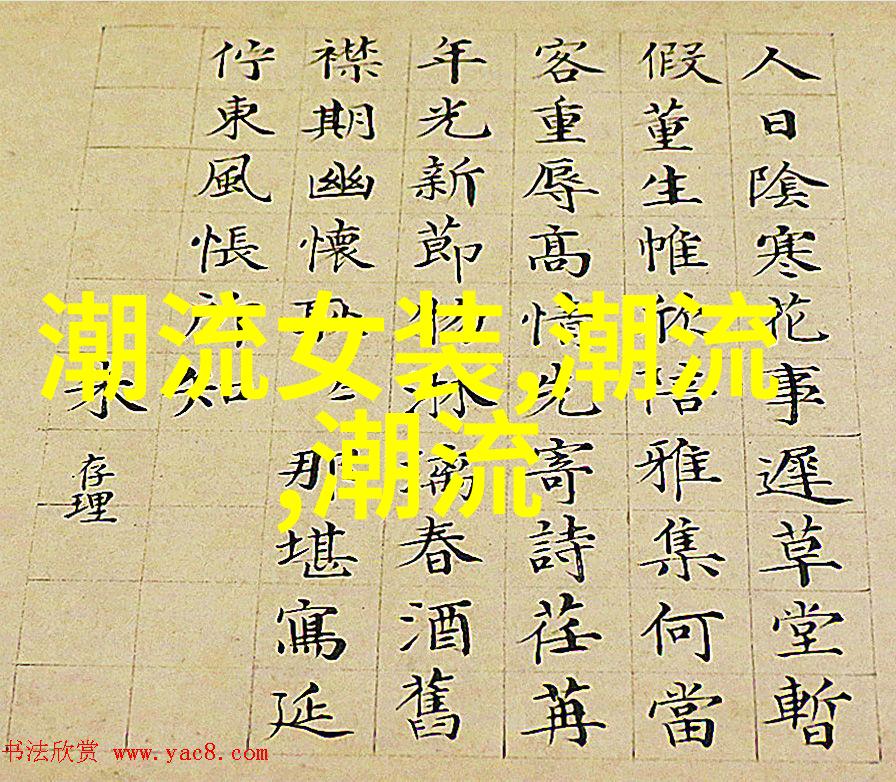 人日陰寒花事遲草堂暫
假董生帷欣雅集何當
客重辱高情先寄詩荏苒
年光新節物淋漓春酒舊
襟期幽懷那堪寫延
佇東風悵知
存理
潮流女装,潮流
,潮流
书法欣赏 www.yac8.com